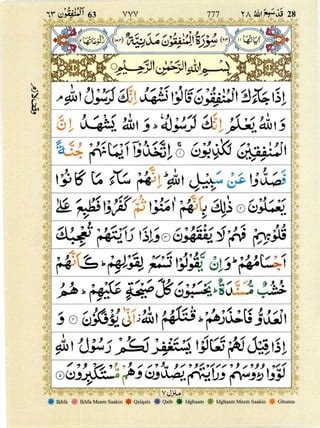 ٦٣ اَلْمُنٰفِقُوْن 63 ٧٧٧ 777 قَدْ سَمِعَ اللّٰهُ ٢٨ 28
سُوْرَةُ الْمُنٰفِقُوْنَ مَدَنِيَّةٌ
بِسْمِ اللّٰهِ الرَّحْمٰنِ الرَّحِيْمِ
اِذَا جَآءَكَ الْمُنٰفِقُوْنَ قَالُوْا نَشْهَدُ اِنَّكَ لَرَسُوْلُ اللّٰهِ ۘ
وَاللّٰهُ يَعْلَمُ اِنَّكَ لَرَسُوْلُهٗ ؕ وَاللّٰهُ يَشْهَدُ اِنَّ
الْمُنٰفِقِيْنَ لَكٰذِبُوْنَ ۚ اِتَّخَذُوْٓا اَيْمَانَهُمْ جُنَّةً
فَصَدُّوْا عَنْ سَبِيْلِ اللّٰهِ ؕ اِنَّهُمْ سَآءَ مَا كَانُوْا
يَعْمَلُوْنَ ذٰلِكَ بِاَنَّهُمْ اٰمَنُوْا ثُمَّ كَفَرُوْا فَطُبِعَ عَلٰى
قُلُوْبِهِمْ فَهُمْ لَا يَفْقَهُوْنَ وَاِذَا رَاَيْتَهُمْ تُعْجِبُكَ
اَجْسَامُهُمْ ؕ وَاِنْ يَّقُوْلُوْا تَسْمَعْ لِقَوْلِهِمْ ؕ كَاَنَّهُمْ
خُشُبٌ مُّسَنَّدَةٌ ؕ يَحْسَبُوْنَ كُلَّ صَيْحَةٍ عَلَيْهِمْ ؕ هُمُ
الْعَدُوُّ فَاحْذَرْهُمْ ؕ قٰتَلَهُمُ اللّٰهُ ؗ اَنّٰى يُؤْفَكُوْنَ
وَاِذَا قِيْلَ لَهُمْ تَعَالَوْا يَسْتَغْفِرْ لَكُمْ رَسُوْلُ اللّٰهِ
لَوَّوْا رُءُوْسَهُمْ وَرَاَيْتَهُمْ يَصُدُّوْنَ وَهُمْ مُّسْتَكْبِرُوْنَ
منزل ٧
Ikhfa Ikhfa Meem Saakin Qalqala Qalb Idghaam Idghaam Meem Saakin Ghunna